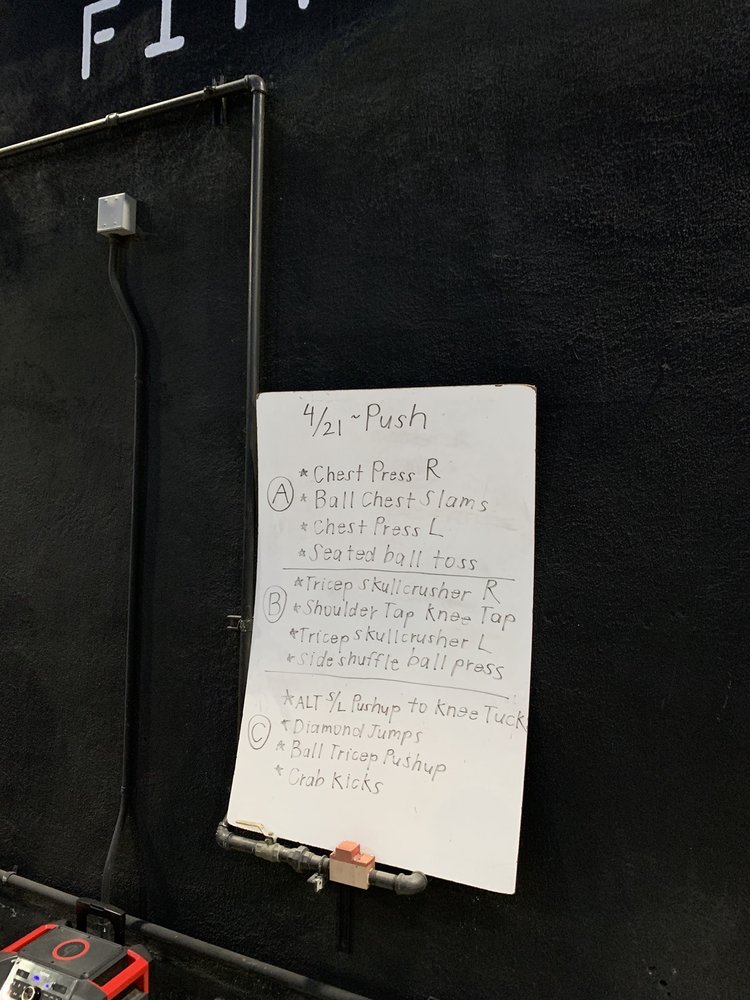 FIT
4/21 ~ Push
A
* Chest Press R
* Ball Chest Slams
* Chest Press L
* Seated ball toss
B
* Tricep skullcrusher R
* Shoulder Tap Knee Tap
* Tricep skullcrusher L
* Side shuffle ball press
C
* ALT S/L Pushup to Knee Tuck
* Diamond Jumps
* Ball Tricep Pushup
* Crab Kicks